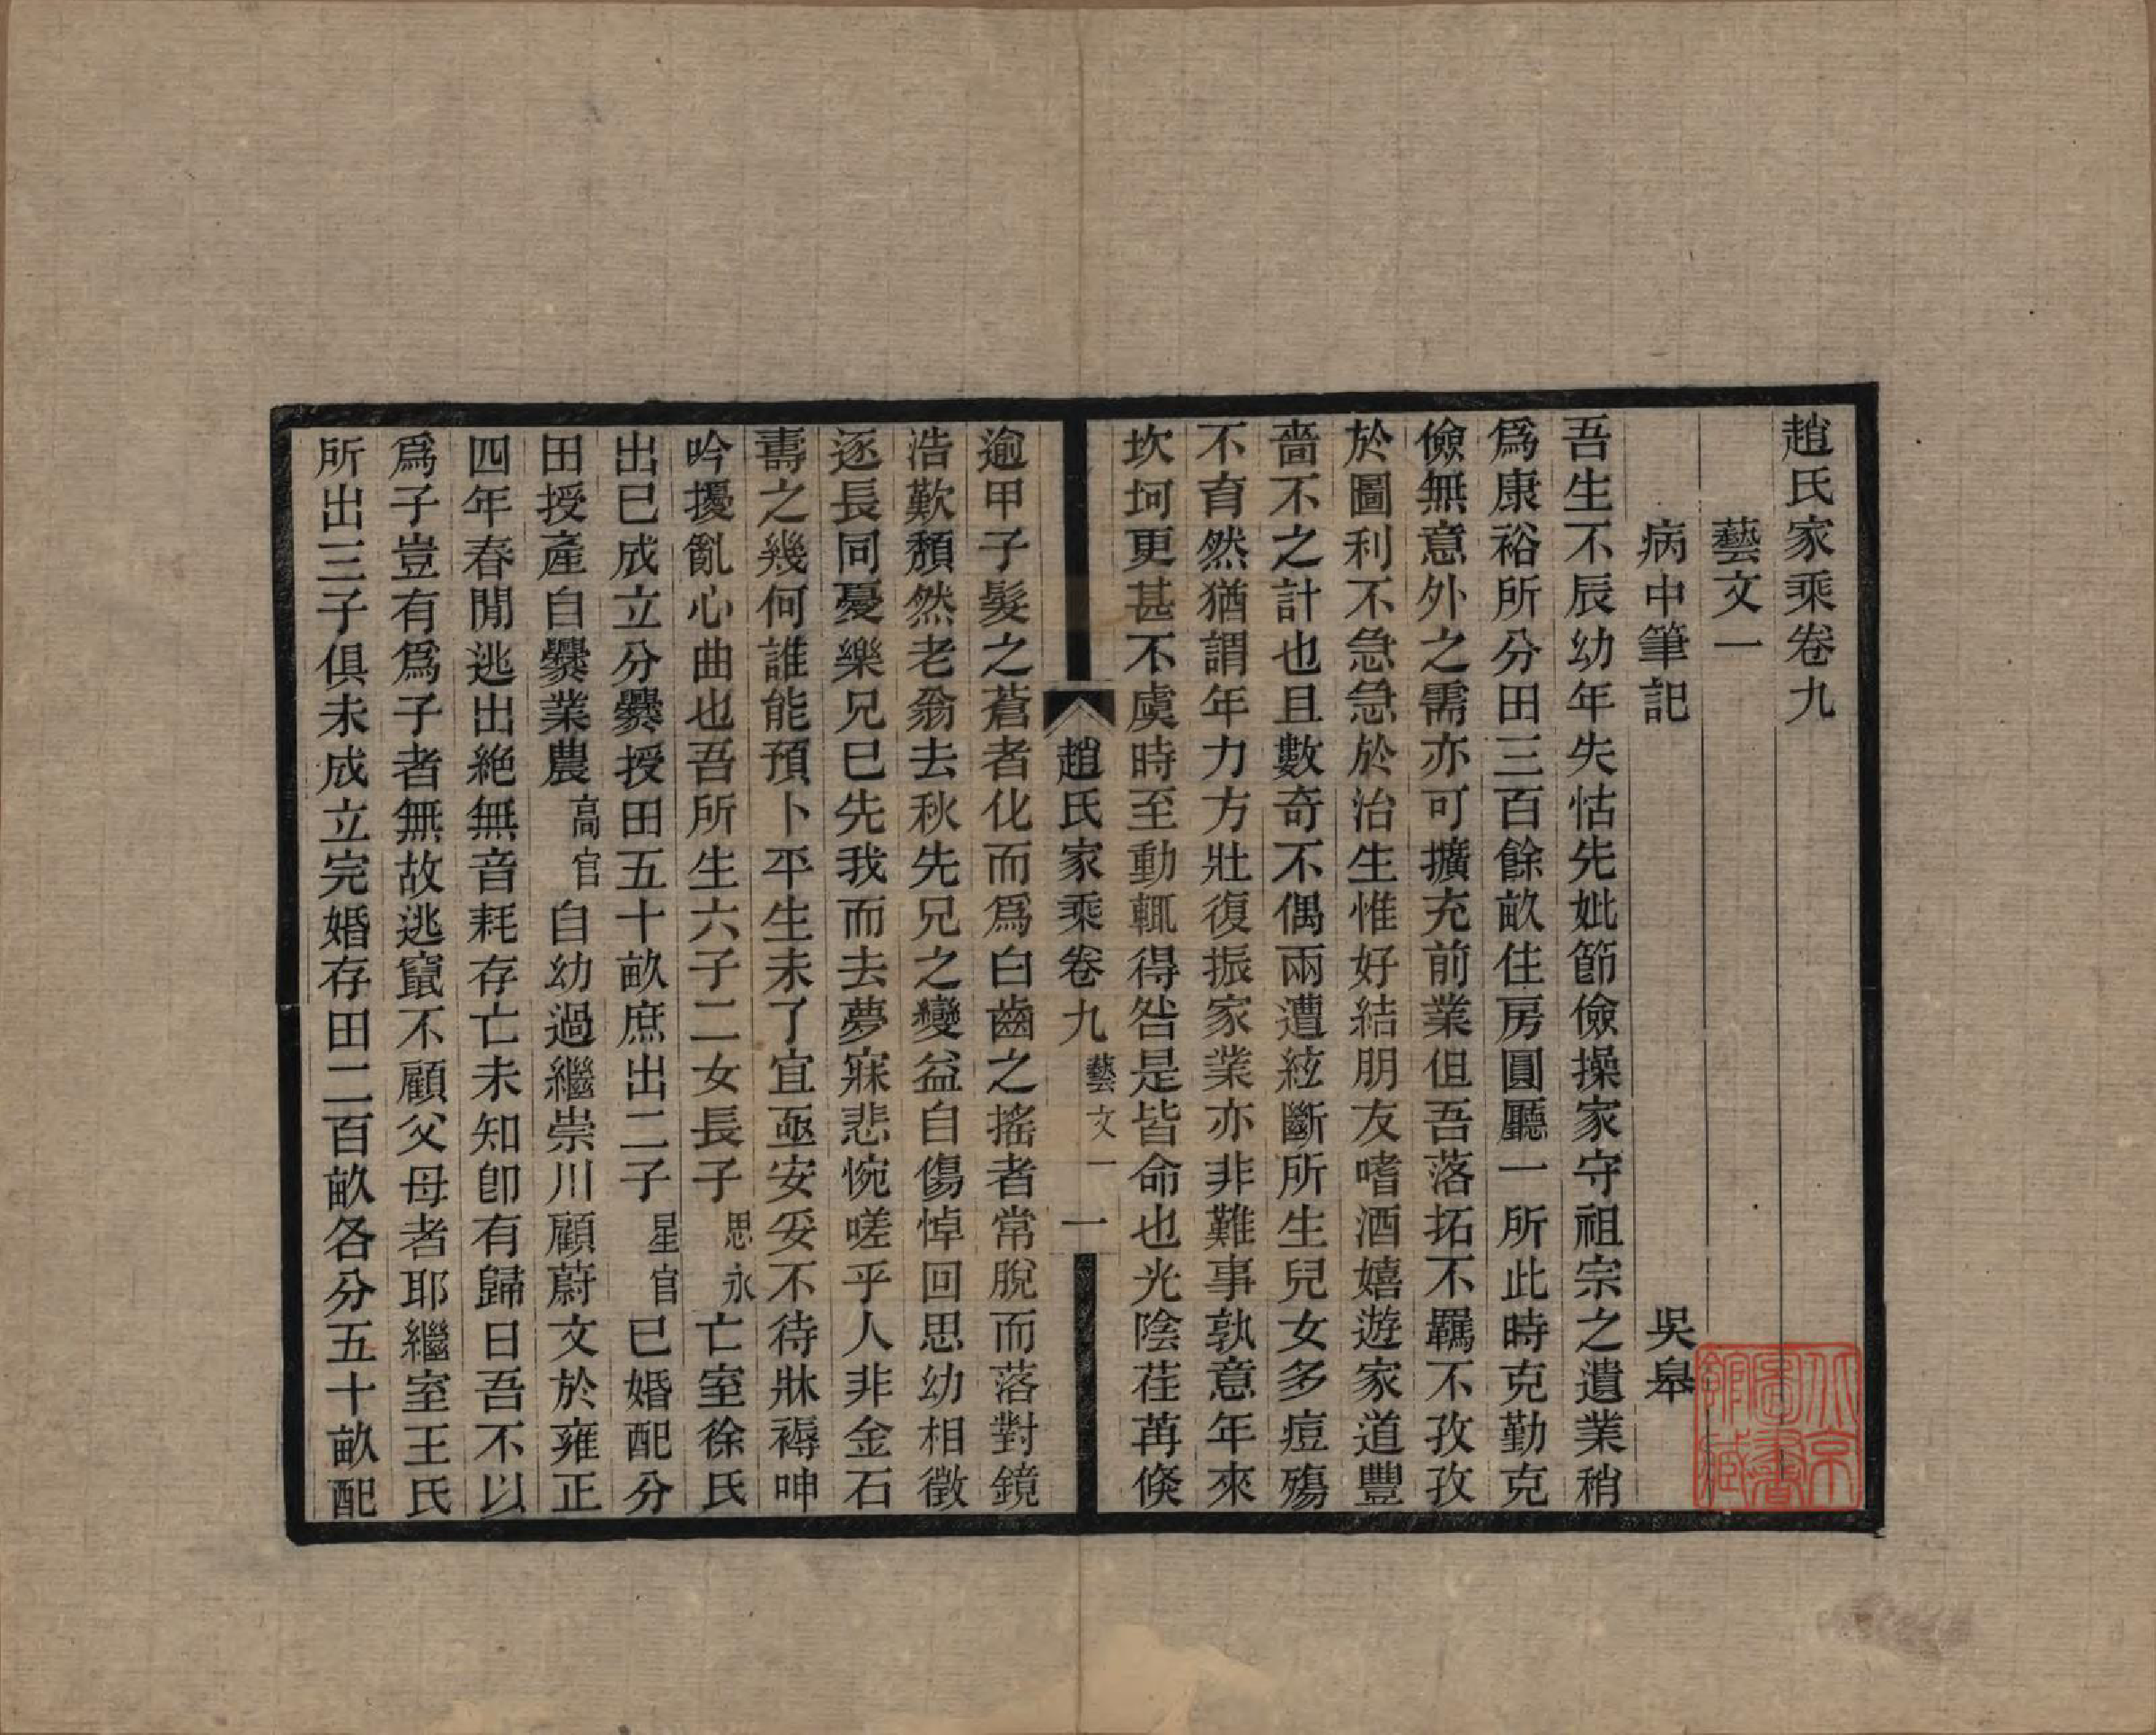 趙氏家乘卷九
藝文一
病中筆記　吳皋
吾生不辰幼年失怙先妣節儉操家守祖宗之遺業稍
爲康裕所分田三百餘畝住房圓廳一所此時克勤克
儉無意外之需亦可擴充前業但吾落拓不羈不孜孜
於圖利不急急於治生惟好結朋友嗜酒嬉遊家道豐
嗇不之計也且數奇不偶兩遭絃斷所生兒女多痘殤
不育然猶謂年力方壯復振家業亦非難事孰意年來
坎坷更甚不虞時至動輒得咎是皆命也光陰荏苒倏
趙氏家乘卷九 藝文一 一
逾甲子髮之蒼者化而爲白齒之搖者常脫而落對鏡
浩歎頹然老翁去秋先兄之變益自傷悼回思幼相徵
逐長同憂樂兄已先我而去夢寐悲惋嗟乎人非金石
壽之幾何誰能預卜平生未了宜亟安妥不待牀褥呻
吟擾亂心曲也吾所生六子二女長子思永亡室徐氏
出已成立分爨授田五十畝庶出二子星官已婚配分
田授產自爨業農高官自幼過繼崇川顧蔚文於雍正
四年春閒逃出絶無音耗存亡未知卽有歸日吾不以
爲子豈有爲子者無故逃竄不顧父母者耶繼室王氏
所出三子俱未成立完婚存田二百畝各分五十畝配
北京
圖書
館藏